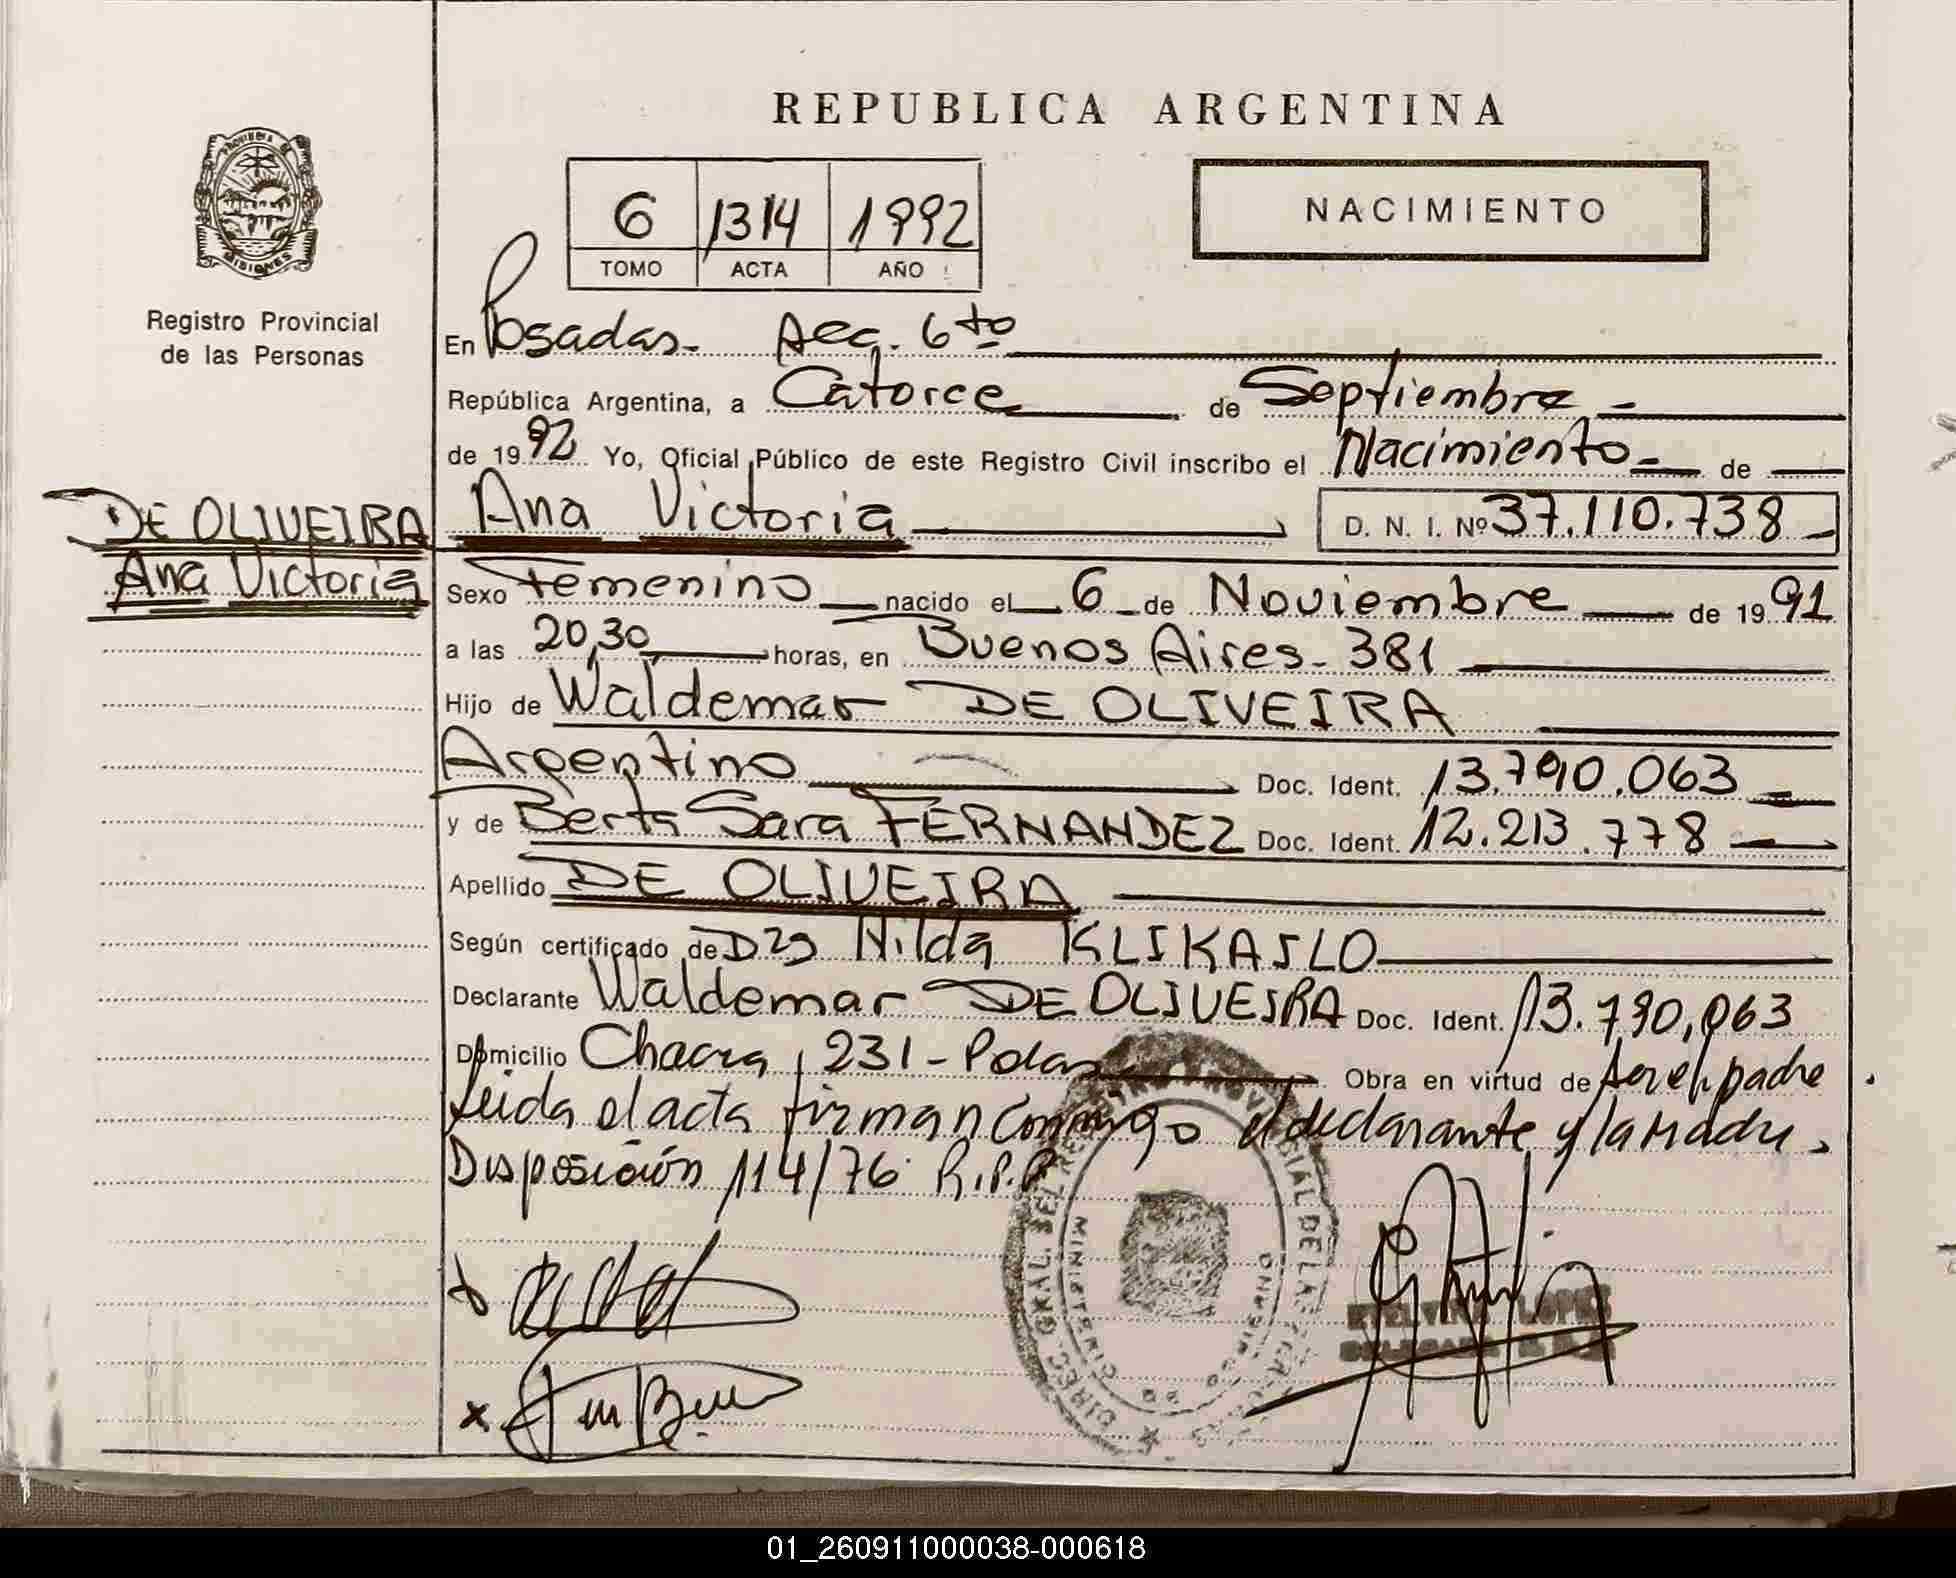 REPUBLICA ARGENTINA
PROVINCIA DE MISIONES
6 1314 1992
TOMO ACTA AÑO
NACIMIENTO
Registro Provincial
de las Personas
En Posadas. Sec. 6to
República Argentina, a Catorce de Septiembre
de 1992 Yo, Oficial Público de este Registro Civil inscribo el Nacimiento de
DE OLIVEIRA
Ana Victoria
Ana Victoria D. N. I. Nº 37.110.738
Sexo Femenino nacido el 6 de Noviembre de 1991
a las 20,30 horas, en Buenos Aires - 381
Hijo de Waldemar DE OLIVEIRA
Argentino Doc. Ident. 13.790.063
y de Berta Sara FERNANDEZ Doc. Ident. 12.213.778
Apellido DE OLIVEIRA
Según certificado de Nilda KLIKAILO
Declarante Waldemar DE OLIVEIRA Doc. Ident. 13.790,063
Domicilio Chacra 231 - Pdas Obra en virtud de ser el padre
Leida el acta firman conmigo el declarante y la madre.
Disposición 114/76 R.P.P
DIREC. GRAL. DEL REGISTRO PROVINCIAL DE LAS
MINISTERIO DE GOBIERNO
LOPEZ
01_260911000038-000618